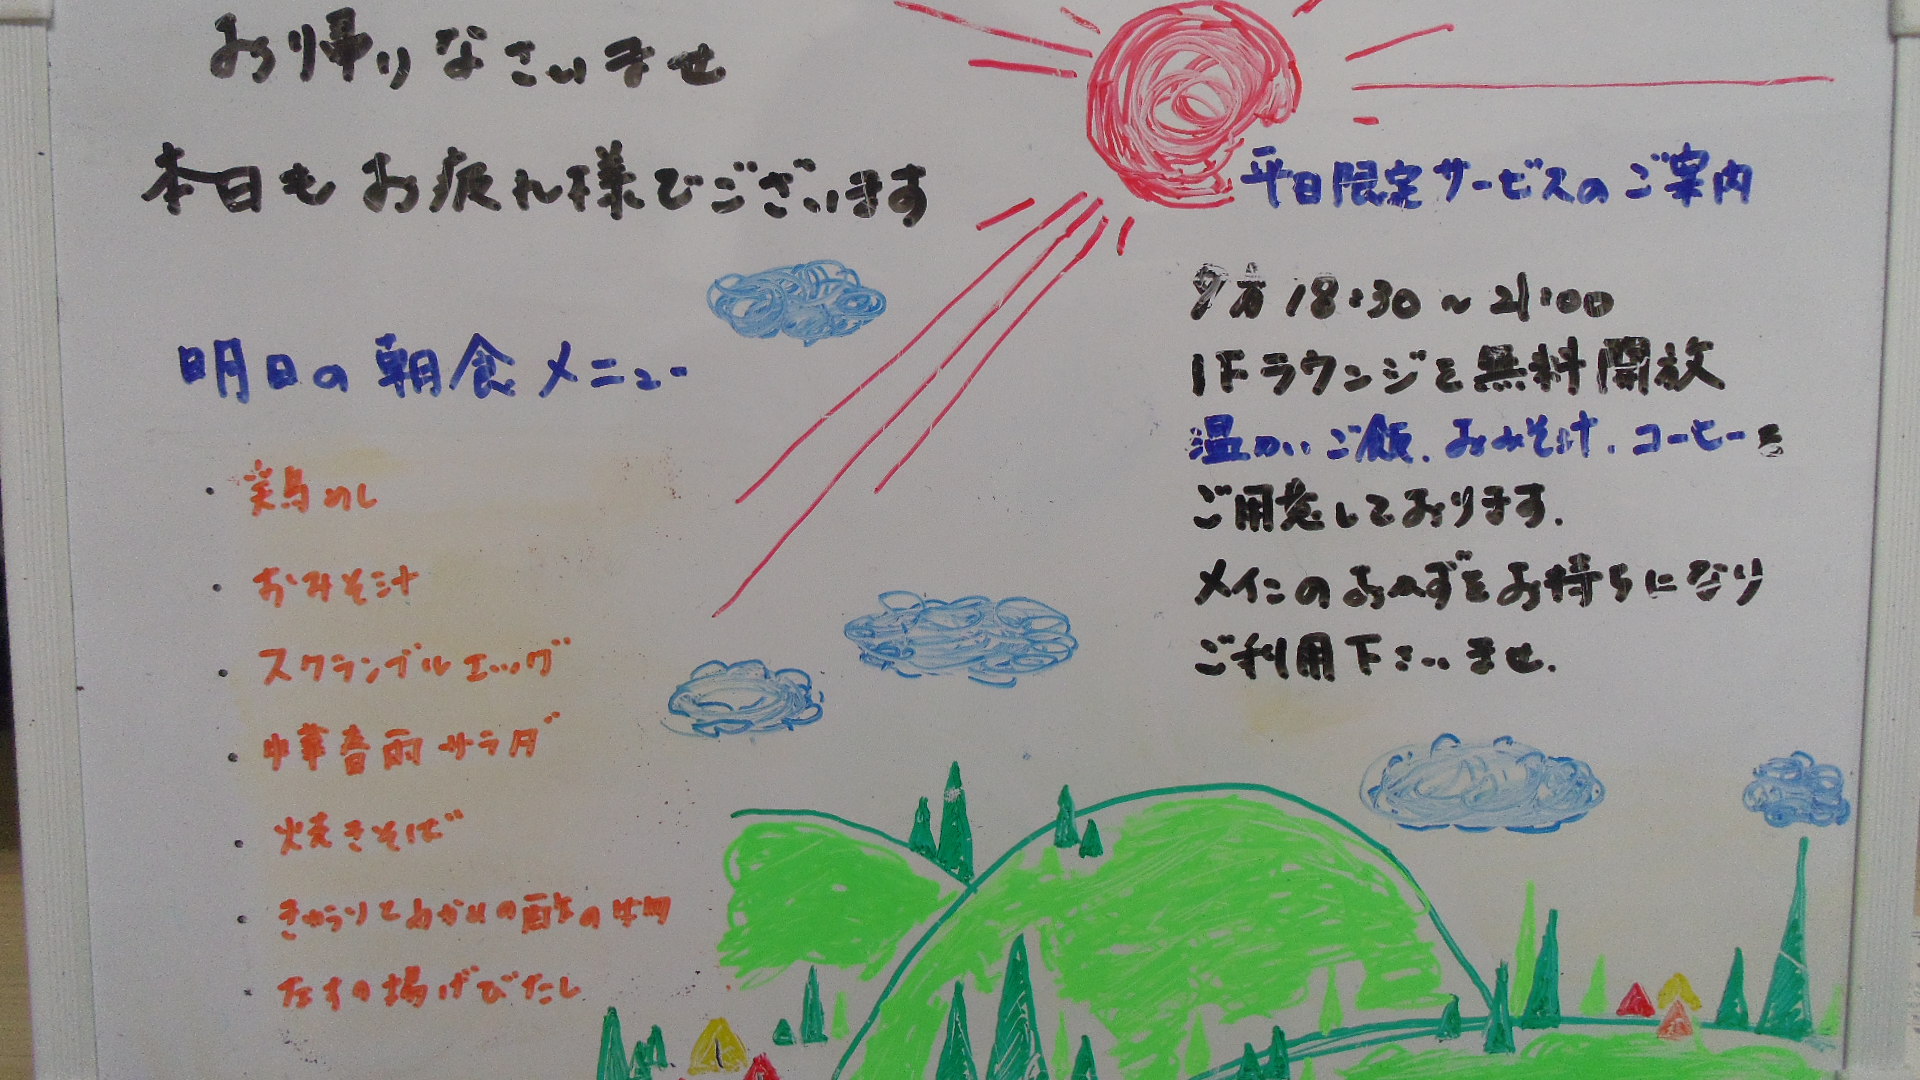 お帰りなさいませ
本日もお疲れ様でございます
明日の朝食メニュー
・鶏めし
・おみそ汁
・スクランブルエッグ
・中華春雨サラダ
・焼きそば
・きゅうりとわかめの酢の物
・なすの揚げびたし
平日限定サービスのご案内
夕方 18:30~21:00
1Fラウンジを無料開放
温かいご飯、おみそ汁、コーヒーを
ご用意しております。
メインのおかずをお持ちになり
ご利用下さいませ。